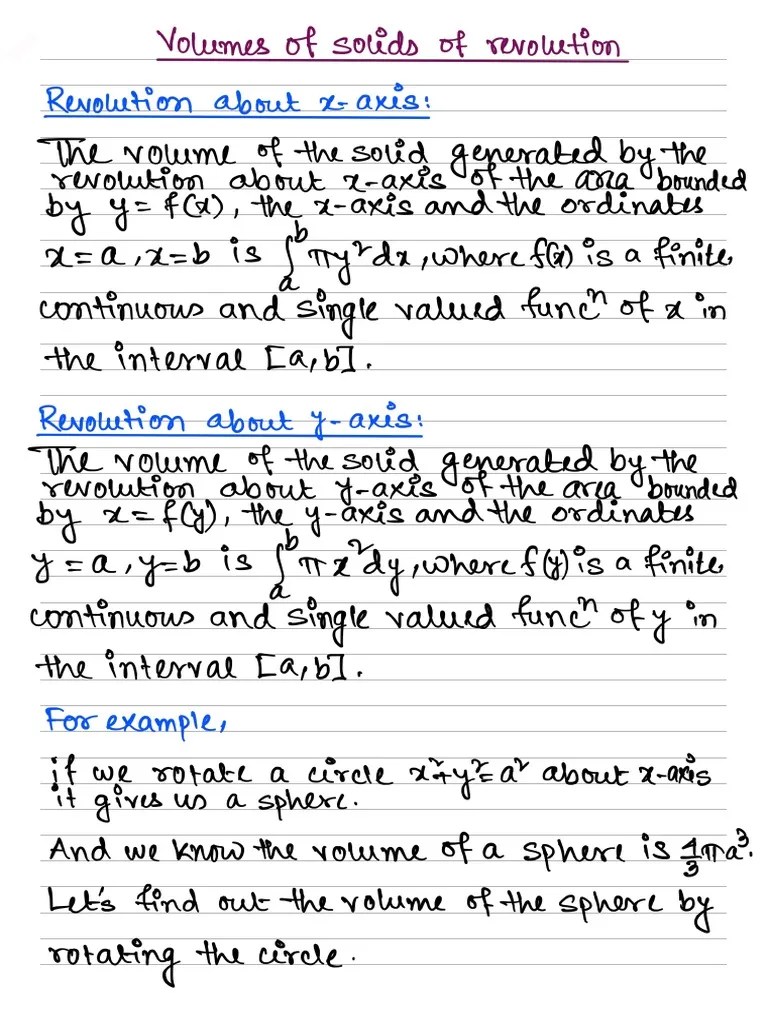 Volumes of solids of revolution
Revolution about x-axis:
The volume of the solid generated by the
revolution about x-axis of the area bounded
by y = f(x), the x-axis and the ordinates
x = a, x = b is ∫ₐᵇ πy²dx, where f(x) is a finite
continuous and single valued funcⁿ of x in
the interval [a,b].
Revolution about y-axis:
The volume of the solid generated by the
revolution about y-axis of the area bounded
by x = f(y), the y-axis and the ordinates
y = a, y = b is ∫ₐᵇ πx²dy, where f(y) is a finite
continuous and single valued funcⁿ of y in
the interval [a,b].
For example,
if we rotate a circle x²+y²=a² about x-axis
it gives us a sphere.
And we know the volume of a sphere is 4/3 πa³.
Let's find out the volume of the sphere by
rotating the circle.